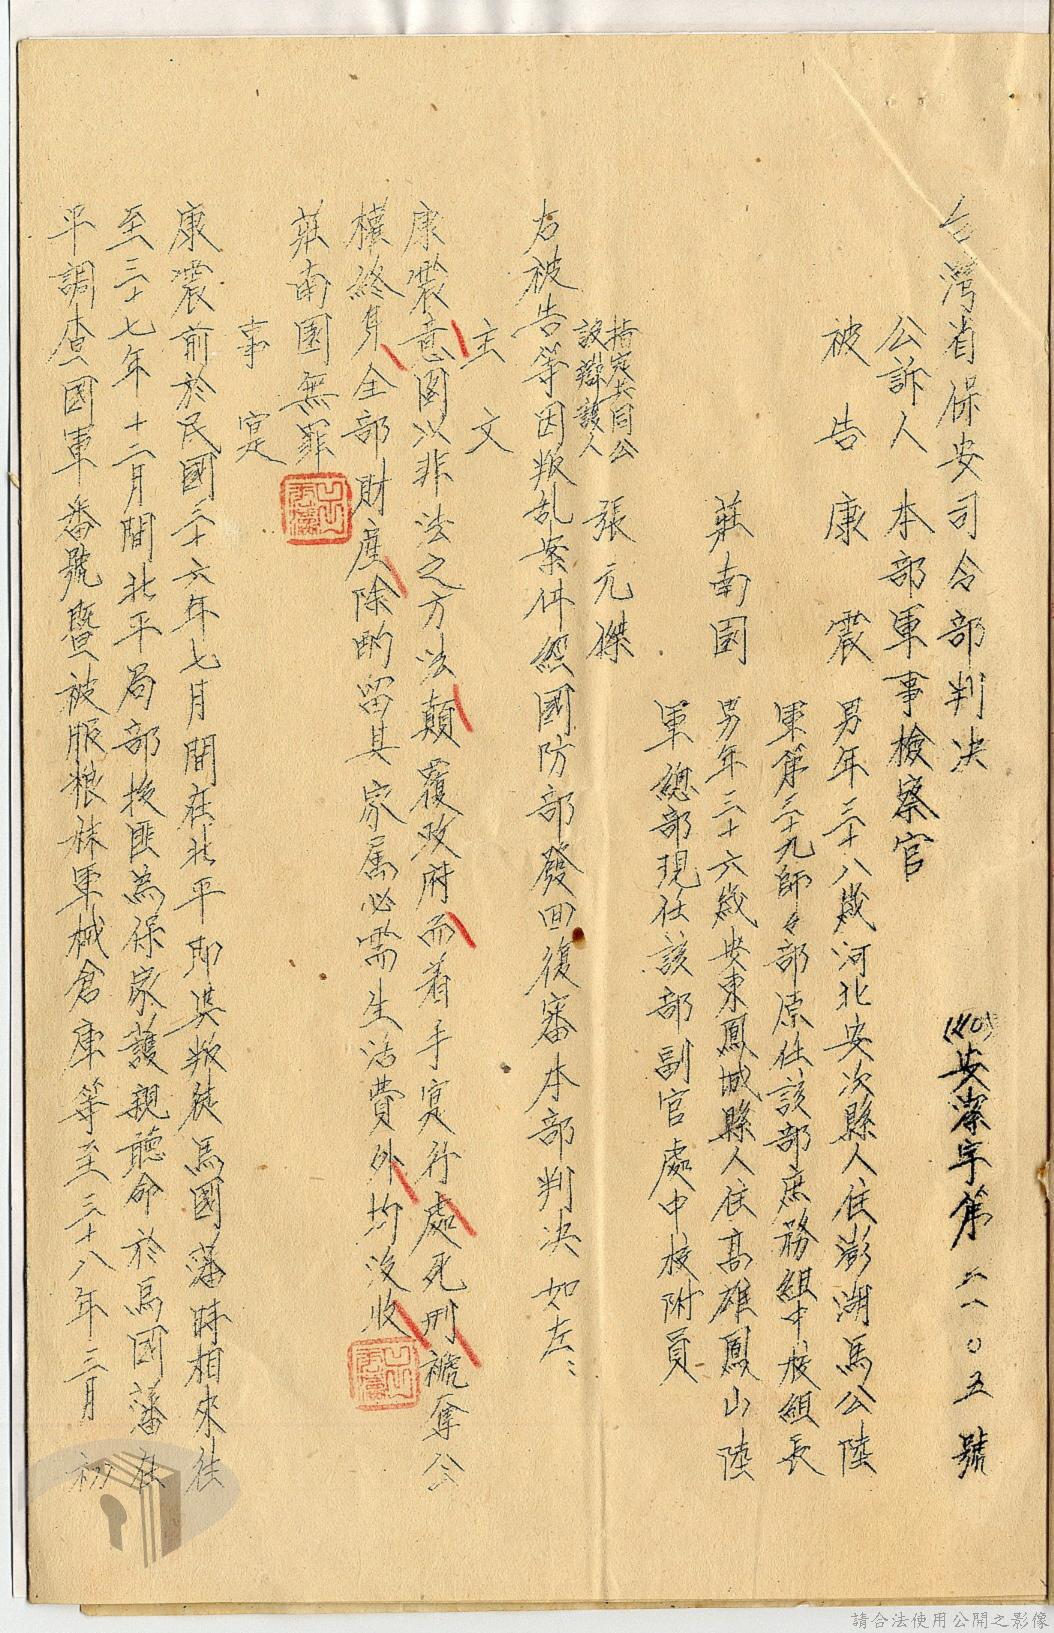 台灣省保安司令部判決
(40)安潔字第二八〇五號
公訴人 本部軍事檢察官
被告 康震 男年三十八歲河北安次縣人住澎湖馬公陸
軍第三十九師々部原任該部庶務組中校組長
莊南園 男年三十六歲安東鳳城縣人住高雄鳳山陸
軍總部現任該部副官處中校附員
指定共同公
設辯護人 張元傑
右被告等因叛乱案件經國防部發回復審本部判決如左：
主文
康震意圖以非法之方法顛覆政府而着手實行處死刑褫奪公
權終身全部財產除酌留其家屬必需生活費外均沒收
莊南園無罪
事實
康震前於民國三十六年七月間在北平即與叛徒馬國藩時相來往
至三十七年十二月間北平局部投匪為保家護親聽命於馬國藩在
平調查國軍番號暨被服粮秣軍械倉庫等至三十八年三月初
請合法使用公開之影像